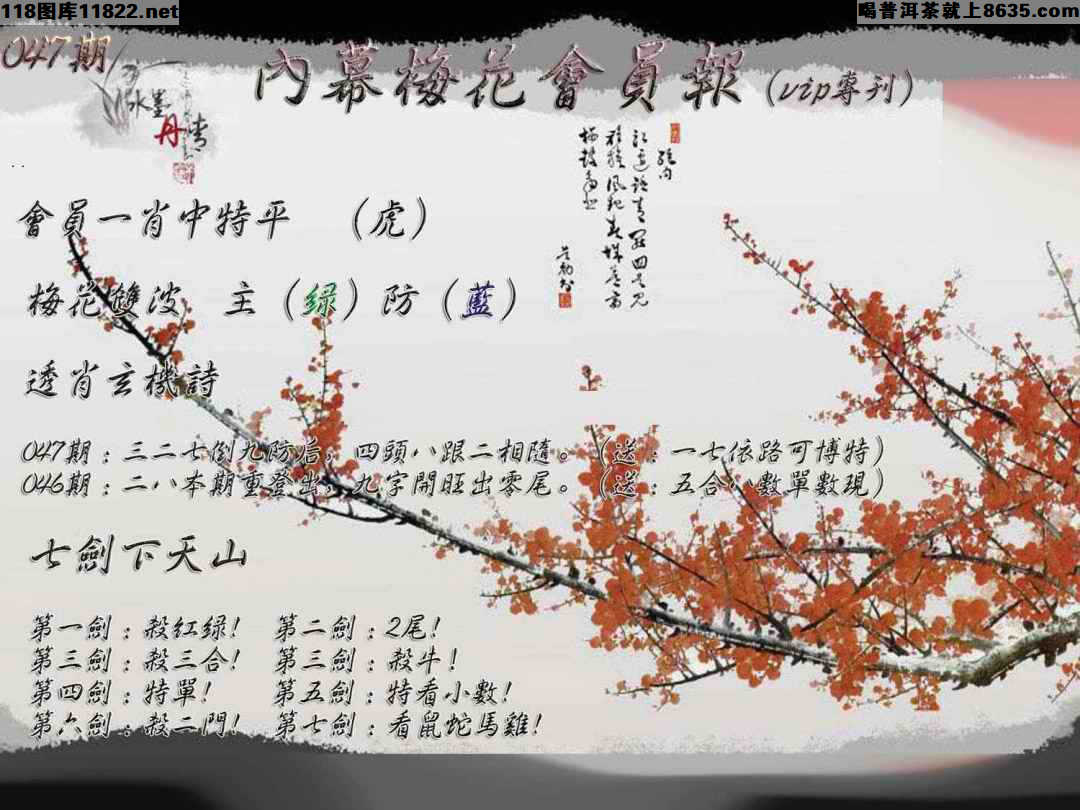 118图库11822.net
喝普洱茶就上8635.com
047期
內幕梅花會員報(vip專刊)
水墨
丹青
會員一肖中特平 (虎)
梅花雙波 主(绿)防(藍)
透肖玄機詩
047期:三二七倒九防后,四頭八跟二相隨。(送:一七依路可博特)
046期:二八本期重登出,九字開旺出零尾。(送:五合八數單數現)
七劍下天山
第一劍:殺紅绿! 第二劍:2尾!
第三劍:殺三合! 第三劍:殺牛!
第四劍:特單! 第五劍:特看小數!
第六劍:殺二門! 第七劍:看鼠蛇馬雞!